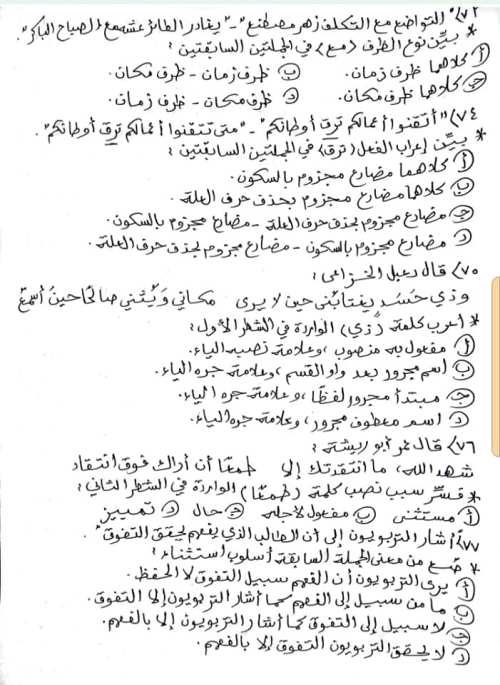 ٧٣/ "التواضع مع التكلف زهر مصطنع" - "يغادر الطائر عشه مع الصباح الباكر".
* بيّن نوع الظرف (مع) في الجملتين السابقتين:
أ كلاهما ظرف زمان. ب ظرف زمان - ظرف مكان.
ج كلاهما ظرف مكان. د ظرف مكان - ظرف زمان.
٧٤/ "أتقنوا أعمالكم ترق أوطانكم" - "متى تتقنوا أعمالكم ترق أوطانكم".
* بيّن إعراب الفعل (ترق) في الجملتين السابقتين:
أ كلاهما مضارع مجزوم بالسكون.
ب كلاهما مضارع مجزوم بحذف حرف العلة.
ج مضارع مجزوم بحذف حرف العلة - مضارع مجزوم بالسكون.
د مضارع مجزوم بالسكون - مضارع مجزوم بحذف حرف العلة.
٧٥/ قال دعبل الخزاعي:
وذي حسد يغتابني حين لا يرى مكاني ويثني صالحا حين أسمع
* أعرب كلمة (ذي) الواردة في الشطر الأول:
أ مفعول به منصوب، وعلامة نصبه الياء.
ب اسم مجرور بعد واو القسم، وعلامة جره الياء.
ج مبتدأ مجرور لفظًا، وعلامة جره الياء.
د اسم معطوف مجرور، وعلامة جره الياء.
٧٦/ قال عمر أبو ريشة:
شهد الله، ما انتقدتك إلا طمعًا أن أراك فوق انتقاد
* فسّر سبب نصب كلمة (طمعًا) الواردة في الشطر الثاني:
أ مستثنى ب مفعول لأجله ج حال د تمييز
٧٧/ أشار التربويون إلى أن الطالب الذي يفهم يحقق التفوق".
* ضع من معنى الجملة السابقة أسلوب استثناء:
أ يرى التربويون أن الفهم سبيل التفوق لا الحفظ.
ب ما من سبيل إلى الفهم كما أشار التربويون إلا التفوق.
ج لا سبيل إلى التفوق كما أشار التربويون إلا بالفهم.
د لا يحقق التربويون التفوق إلا بالفهم.